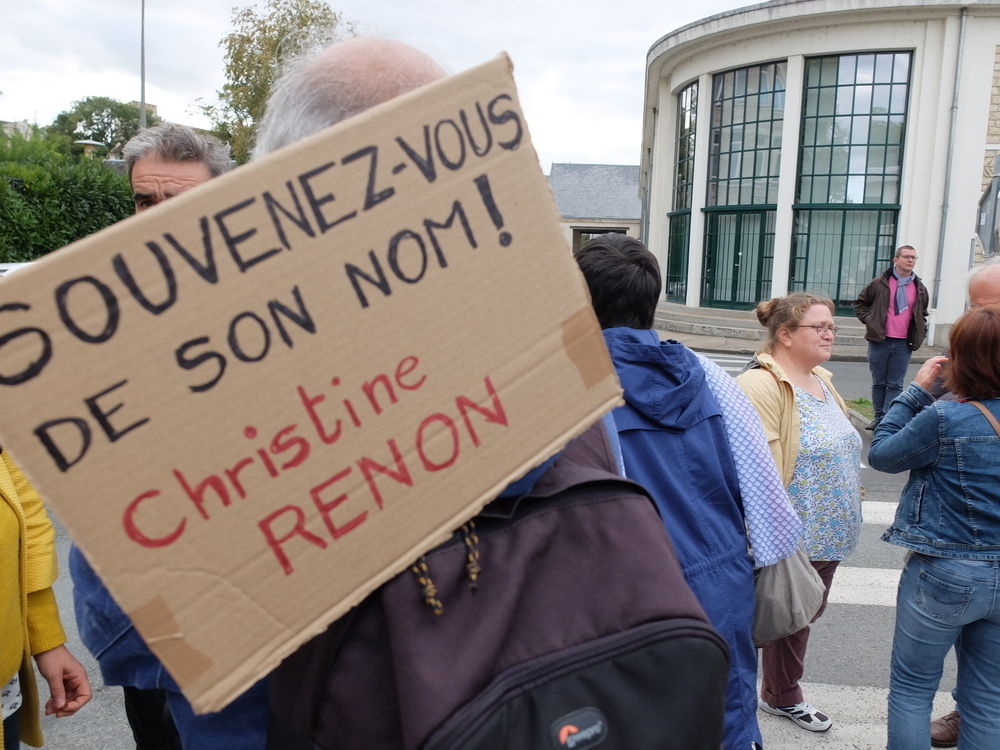 SOUVENEZ-VOUS
DE SON NOM!
Christine
RENON
Lowepro